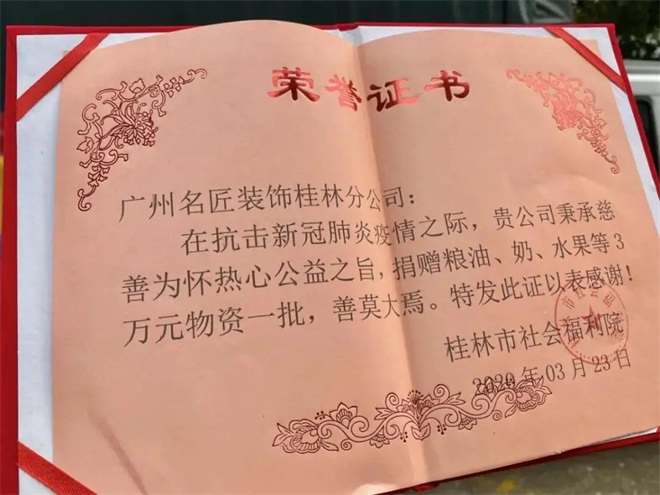 荣誉证书
广州名匠装饰桂林分公司:
在抗击新冠肺炎疫情之际，贵公司秉承慈
善为怀热心公益之旨，捐赠粮油、奶、水果等3
万元物资一批，善莫大焉。特发此证以表感谢！
桂林市社会福利院
2020年03月23日